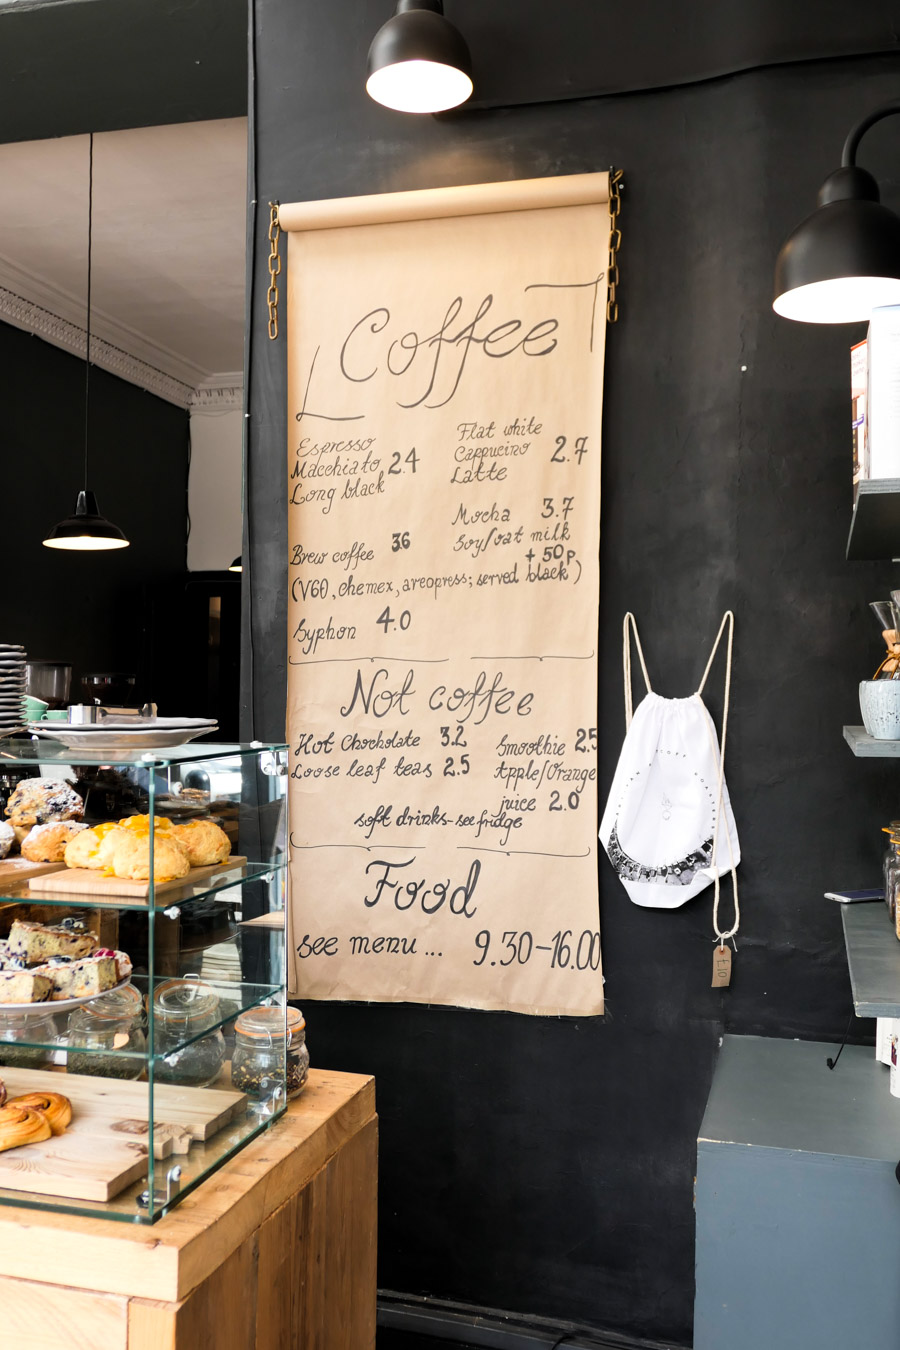 Coffee
Espresso
Macchiato 2.4
Long black
Flat white
Cappucino 2.7
Latte
Mocha 3.7
Soy/oat milk
+50p
Brew coffee 3.6
(V60, chemex, areopress; served black)
Syphon 4.0
Not coffee
Hot Chocholate 3.2
Loose leaf teas 2.5
Smoothie 2.5
Apple/Orange
juice 2.0
soft drinks-see fridge
Food
see menu... 9.30-16.00
£10